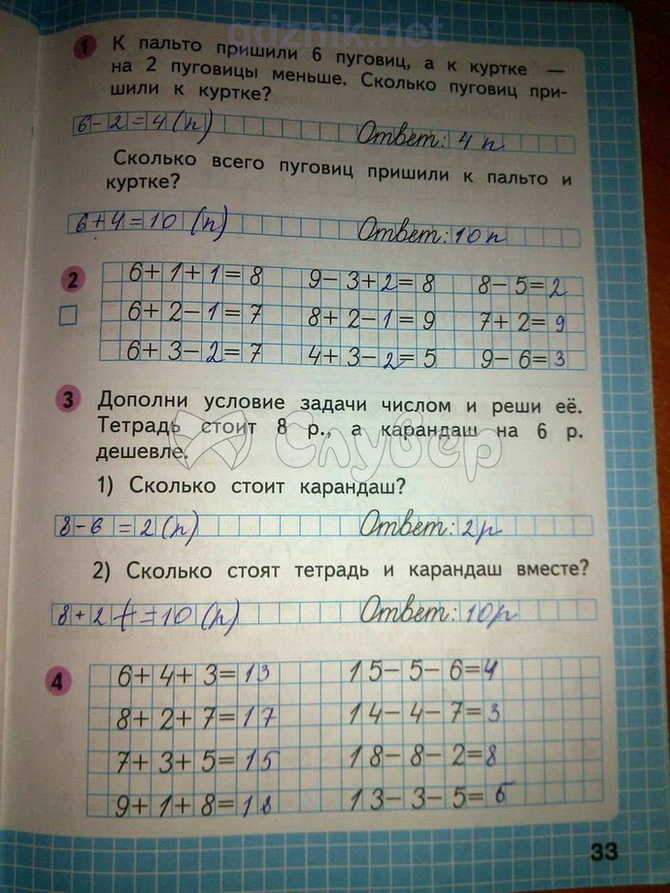 gdznik.net
1 К пальто пришили 6 пуговиц, а к куртке —
на 2 пуговицы меньше. Сколько пуговиц при-
шили к куртке?
6-2=4(п) Ответ: 4 п
Сколько всего пуговиц пришили к пальто и
куртке?
6+4=10 (п) Ответ: 10 п
2 6+1+1=8 9-3+2=8 8-5=2
6+2-1=7 8+2-1=9 7+2=9
6+3-2=7 4+3-2=5 9-6=3
3 Дополни условие задачи числом и реши её.
Тетрадь стоит 8 р., а карандаш на 6 р.
дешевле.
Спувер
1) Сколько стоит карандаш?
8-6=2(п) Ответ: 2р
2) Сколько стоят тетрадь и карандаш вместе?
8+2=10(п) Ответ: 10р
4 6+4+3=13 15-5-6=4
8+2+7=17 14-4-7=3
7+3+5=15 18-8-2=8
9+1+8=18 13-3-5=5
33